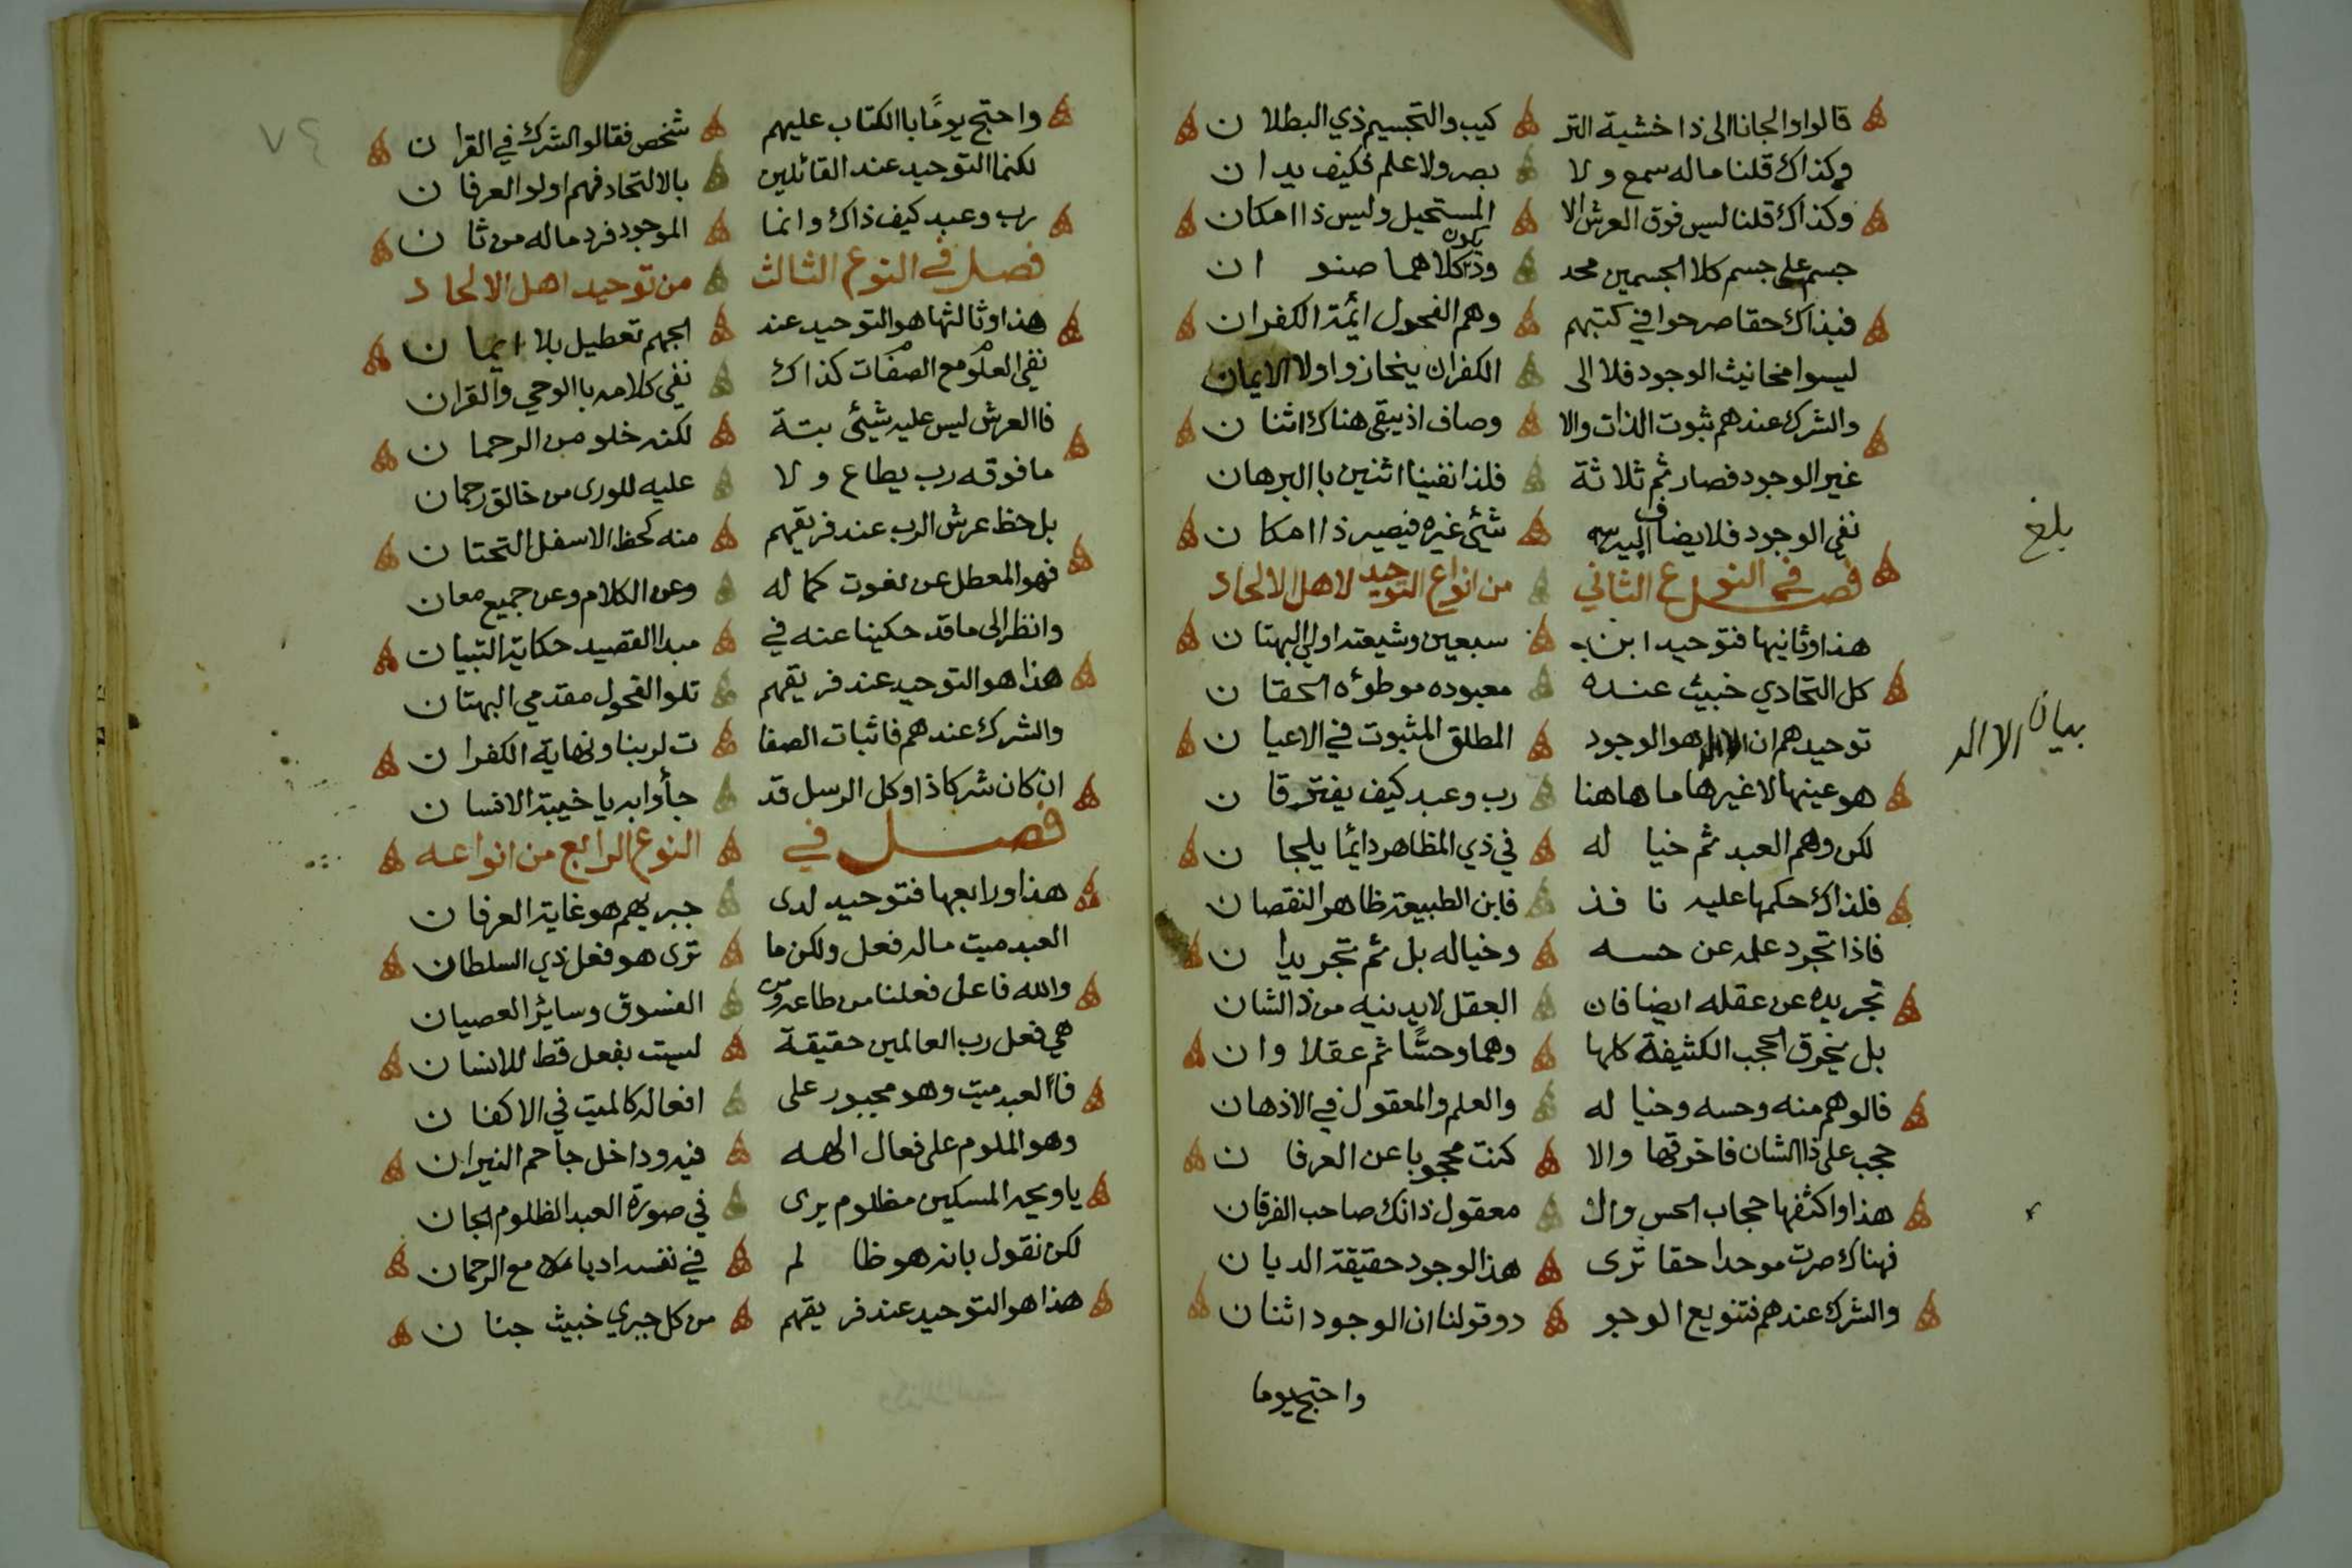 قالوا والجانا الى ذا خشية التر كيب والتجسيم ذي البطلان
وكذاك قلنا ماله سمع ولا بصر ولا علم فكيف يدان
وكذاك قلنا ليس فوق العرش الا المستحيل وليس ذا امكان
جسم على جسم كلا الجسمين محد ود يكون كلاهما صنوان
فبذاك حقا صرحوا في كتبهم وهم الفحول ائمة الكفران
ليسوا مخانيث الوجود فلا الى الكفران ينحازوا ولا الايمان
والشرك عندهم ثبوت الذات والا وصاف اذ يبقى هناك اثنان
غير الوجود فصار ثم ثلاثة فلذا نفينا اثنين باالبرهان
نفي الوجود فلا يضاف اليه شئ غيره فيصير ذا امكان
فصل في النوع الثاني من انواع التوحيد لاهل الالحاد
هذا وثانيها فتوحيد ابن سبعين وشيعته اولي البهتان
كل اتحادي خبيث عنده معبوده موطوئه الحقان
توحيدهم ان الاله هو الوجود المطلق المثبوت في الاعيان
هو عينها لا غيرها ما هاهنا رب وعبد كيف يفترقان
لكن وهم العبد ثم خياله في ذي المظاهر دائما يلجان
فلذاك حكمها عليه نافذ فابن الطبيعة ظاهر النقصان
فاذا تجرد علمه عن حسه وخياله بل ثم تجريدان
تجريده عن عقله ايضا فان العقل لا يدنيه من ذا الشان
بل يخرق الحجب الكثيفة كلها وهما وحسّا ثم عقلا وان
فالوهم منه وحسه وخياله والعلم والمعقول في الاذهان
حجب على ذا الشان فاخرقها والا كنت محجوبا عن العرفان
هذا واكثفها حجاب الحس وال معقول ذانك صاحب الفرقان
فهناك صرت موحدا حقا ترى هذا الوجود حقيقة الديان
والشرك عندهم فتنويع الوجو د وقولنا ان الوجود اثنان
واحتج يوما
بلغ
بيان الاله
٧٤
واحتج يومًا باالكتاب عليهم شخص فقالو الشرك في القران
لكنما التوحيد عند القائلين بالاتحاد فهم اولو العرفان
رب وعبد كيف ذاك وانما الموجود فرد ماله من ثان
فصل في النوع الثالث من توحيد اهل الالحاد
هذا وثالثها هو التوحيد عند الجهم تعطيل بلا ايمان
نفي العلو مع الصفات كذاك نفي كلامه باالوحي والقران
فاالعرش ليس عليه شيئ بتة لكنه خلو من الرحمان
ما فوقه رب يطاع ولا عليه للورى من خالق رحمان
بل حظ عرش الرب عند فريقهم منه كحظ الاسفل التحتان
فهو المعطل عن نعوت كماله وعن الكلام وعن جميع معان
وانظر الى ما قد حكينا عنه في مبدا القصيد حكاية التبيان
هذا هو التوحيد عند فريقهم تلو الفحول مقدمي البهتان
والشرك عندهم فاثبات الصفا ت لربنا ونهاية الكفران
ان كان شركا ذا وكل الرسل قد جأوا به يا خيبة الانسان
فصل في النوع الرابع من انواعه
هذا ورابعها فتوحيد لدى جبريهم هو غاية العرفان
العبد ميت ماله فعل ولكن ما ترى هو فعل ذي السلطان
والله فاعل فعلنا من طاعة ومن الفسوق وسائر العصيان
هي فعل رب العالمين حقيقة ليست بفعل قط للانسان
فاالعبد ميت وهو مجبور على افعاله كالميت في الاكفان
وهو الملوم على فعال الهه فيه وداخل جاحم النيران
يا ويحه المسكين مظلوم يرى في صورة العبد الظلوم الجان
لكن نقول بانه هو ظالم في نفسه ادبا مع الرحمان
هذا هو التوحيد عند فريقهم من كل جبري خبيث جنان